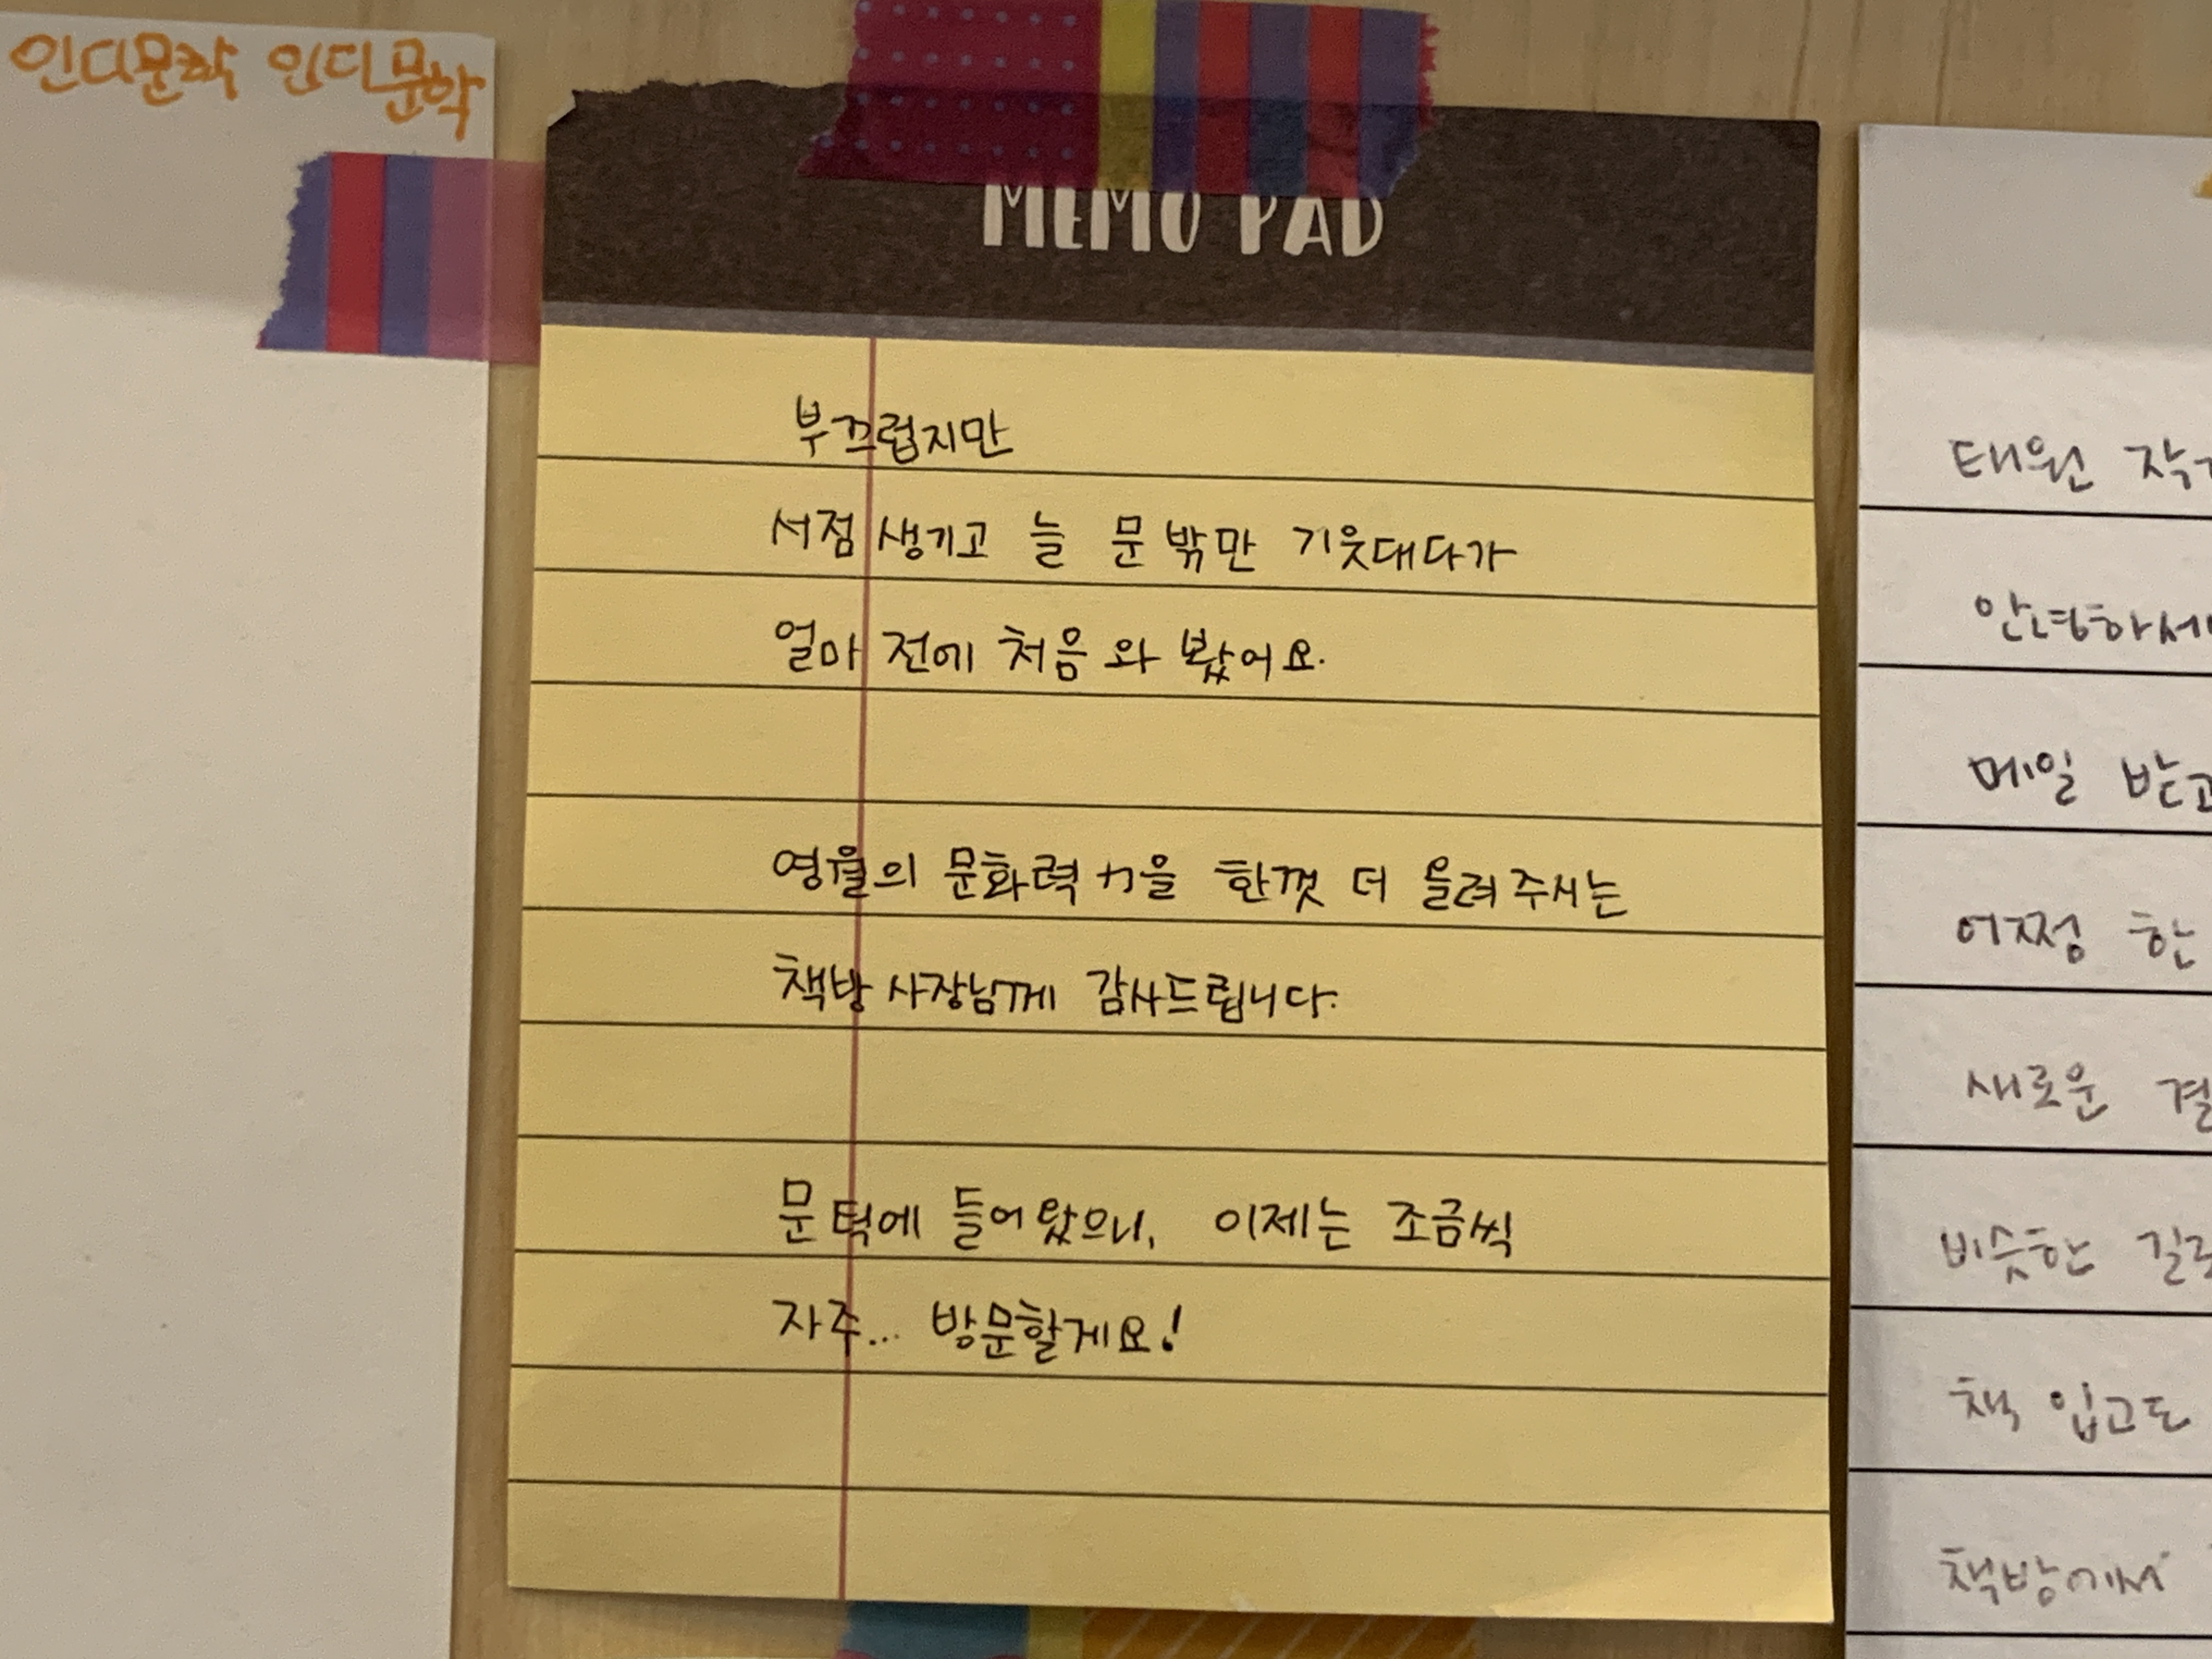 인디문학 인디문학
MEMO PAD
부끄럽지만
서점 생기고 늘 문 밖만 기웃대다가
얼마 전에 처음 와 봤어요.
영월의 문화력 ↑을 한껏 더 올려주시는
책방 사장님께 감사드립니다.
문턱에 들어왔으니, 이제는 조금씩
자주... 방문할게요!
태원
안녕하세
메일 받고
어쩜 한
새로운 결
비슷한
책 입고도
책방에서